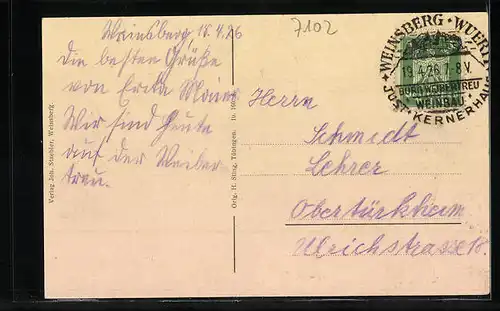 7102
Weinsberg, 18.4.26
Die besten Grüße
von Erika Maier
Wir sind heute
auf der Weiber
treu.
Herrn
Schmedt
Lehrer
Obertürkheim
Ulrichstrasse 18.
WEINSBERG · WUERTT
19.4.26 7-8 V.
BURG WEIBERTREU
WEINBAU
JUST. KERNERHAUS
Verlag Joh. Staehler, Weinsberg.
Orig. H. Sting, Tübingen.